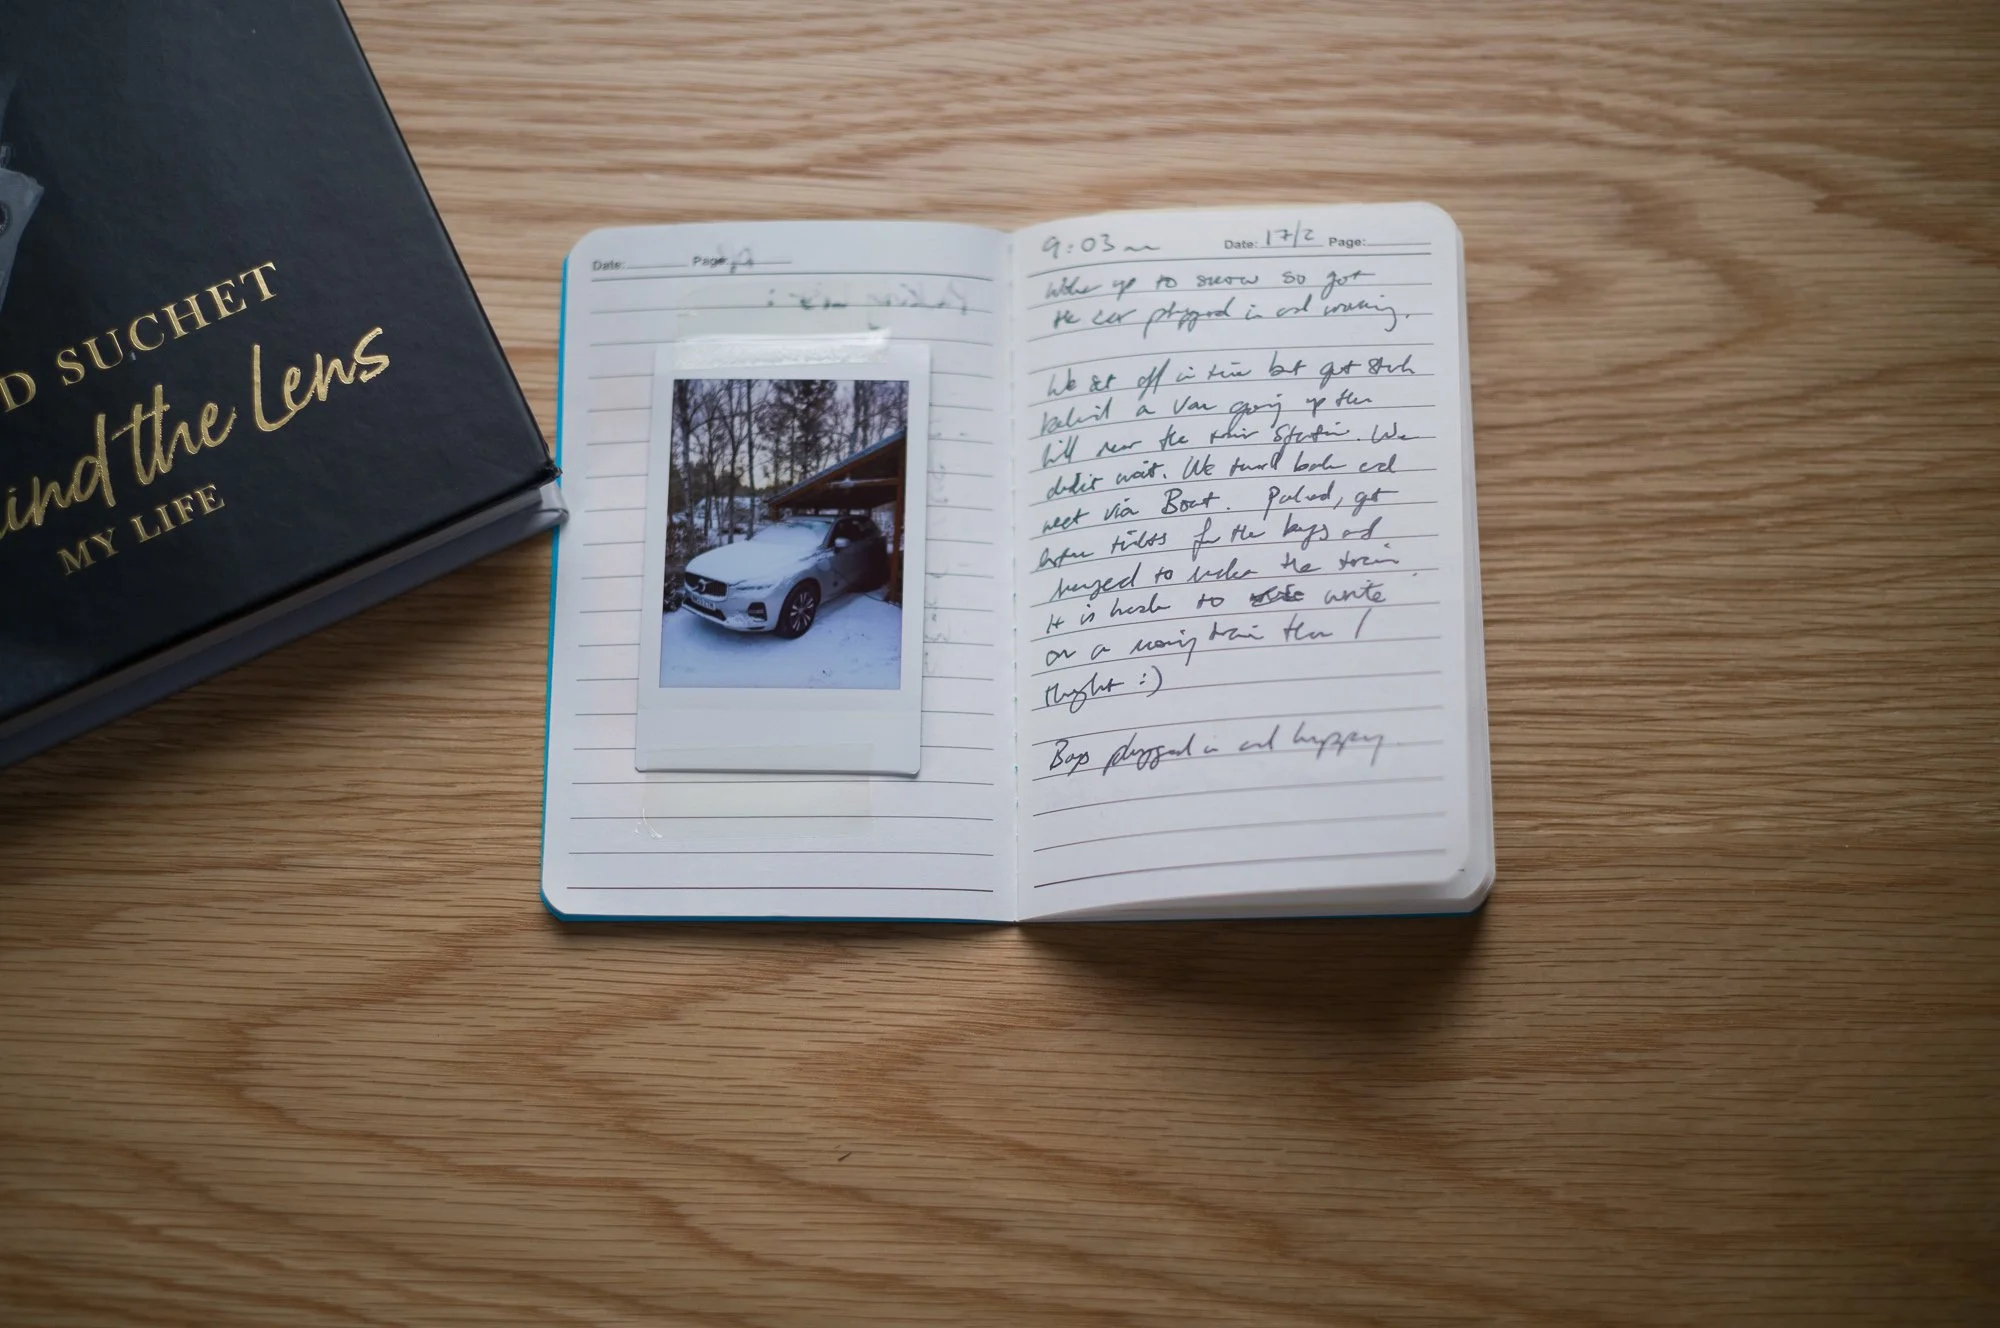 D SUCHET
ind the Lens
MY LIFE
Date: Page:
9:03am Date: 17/2 Page:
Woke up to snow so got
the car plugged in and warming.
We set off in time but got stuck
behind a van going up the
hill near the train station. We
didn't wait. We turned back and
went via Boat. Parked, got
tickets for the boys and
managed to make the train.
It is harder to write
on a moving train than I
thought :)
Boys plugged in and happy.